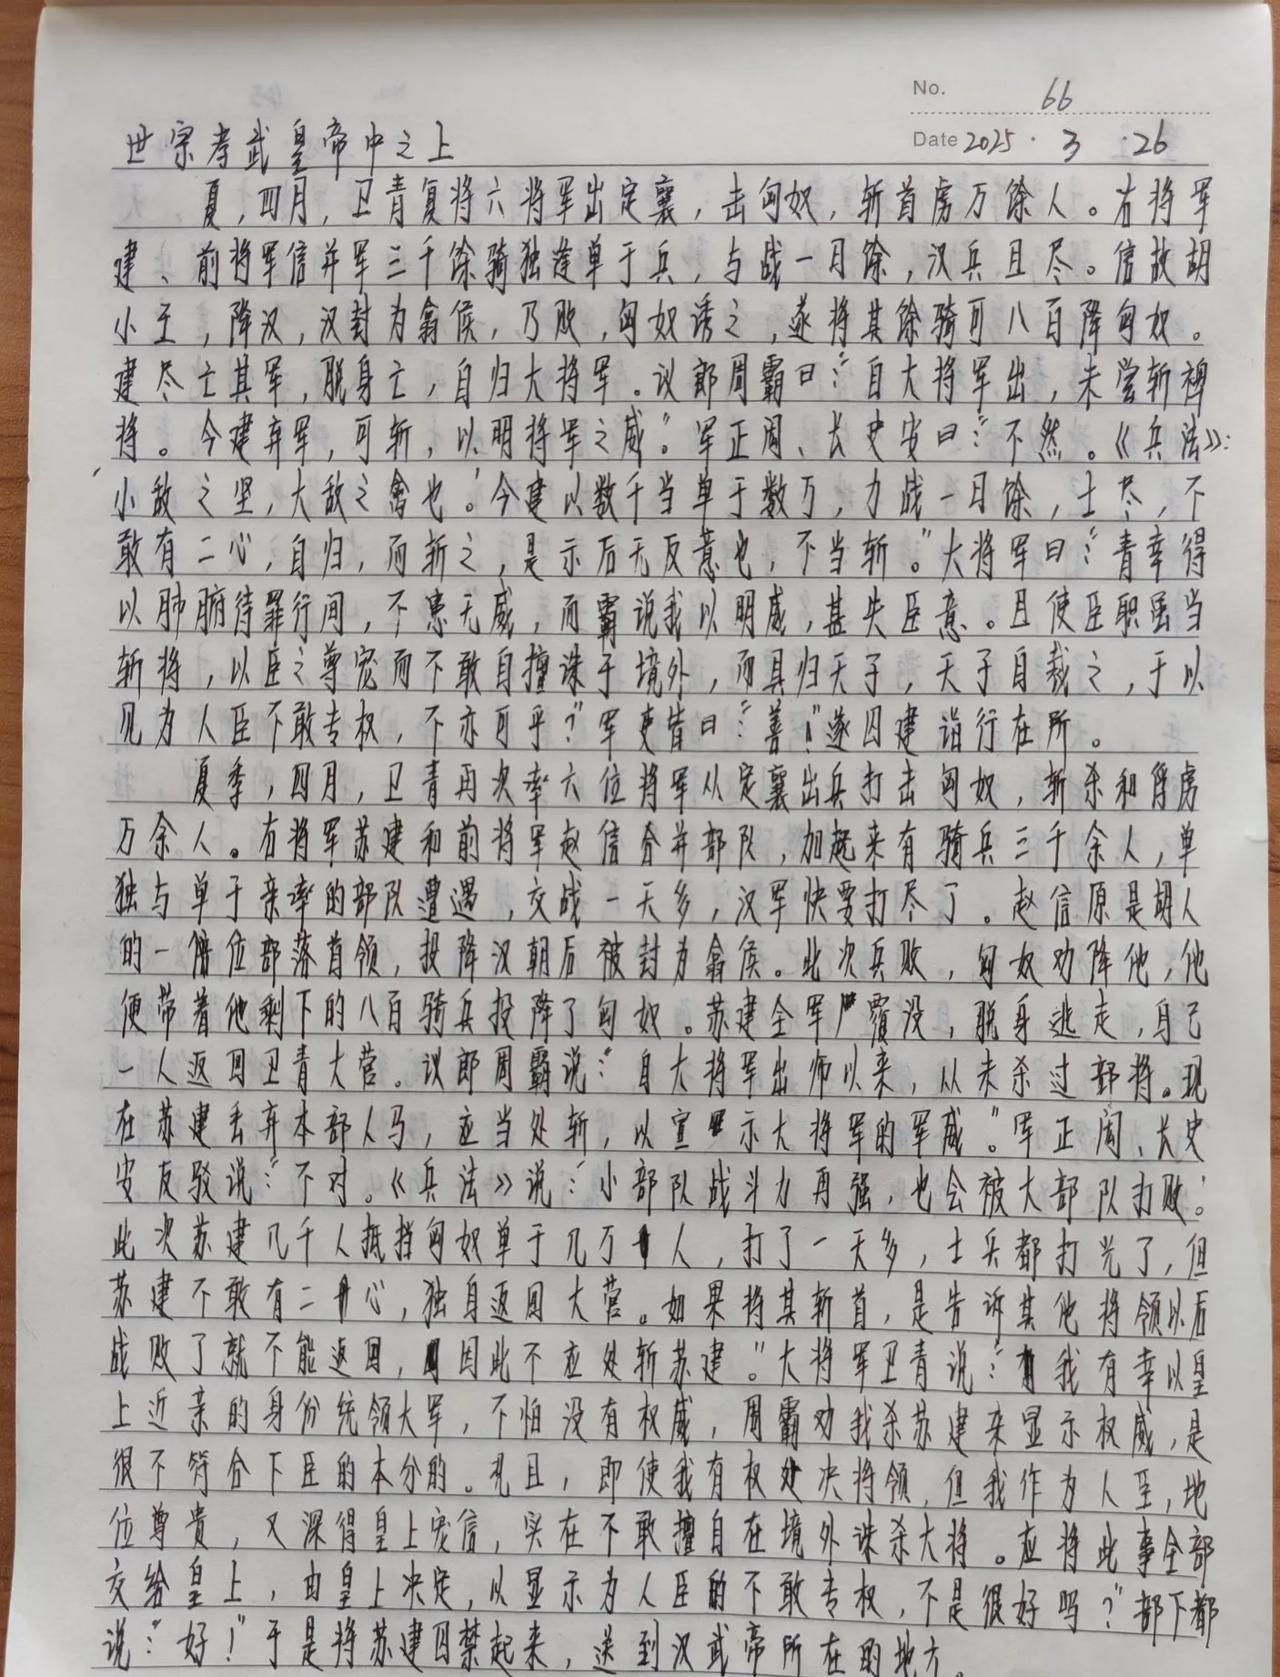 No. 66
Date 2025 · 3 · 26
世宗孝武皇帝中之上
夏，四月，卫青复将六将军出定襄，击匈奴，斩首虏万馀人。右将军
建、前将军信并军三千馀骑独逢单于兵，与战一日馀，汉兵且尽。信故胡
小王，降汉，汉封为翕侯，乃败，匈奴诱之，遂将其馀骑可八百降匈奴。
建尽亡其军，脱身亡，自归大将军。议郎周霸曰：“自大将军出，未尝斩裨
将。今建弃军，可斩，以明将军之威。”军正闳、长史安曰：“不然。《兵法》：
‘小敌之坚，大敌之禽也。’今建以数千当单于数万，力战一日馀，士尽，不
敢有二心，自归，而斩之，是示后无反意也，不当斩。”大将军曰：“青幸得
以肺腑待罪行间，不患无威，而霸说我以明威，甚失臣意。且使臣职虽当
斩将，以臣之尊宠而不敢自擅诛于境外，而具归天子，天子自裁之，于以
见为人臣不敢专权，不亦可乎？”军吏皆曰：“善！”遂囚建诣行在所。
夏季，四月，卫青再次率六位将军从定襄出兵打击匈奴，斩杀和俘虏
万余人。右将军苏建和前将军赵信合并部队，加起来有骑兵三千余人，单
独与单于亲率的部队遭遇，交战一天多，汉军快要打尽了。赵信原是胡人
的一个位部落首领，投降汉朝后被封为翕侯。此次兵败，匈奴劝降他，他
便带着他剩下的八百骑兵投降了匈奴。苏建全军覆没，脱身逃走，自己
一人返回卫青大营。议郎周霸说：“自大将军出师以来，从未杀过部将。现
在苏建丢弃本部人马，应当处斩，以宣示大将军的军威。”军正闳、长史
安反驳说：“不对。《兵法》说：‘小部队战斗力再强，也会被大部队打败。’
此次苏建几千人抵挡匈奴单于几万人，打了一天多，士兵都打光了，但
苏建不敢有二心，独自返回大营。如果将其斩首，是告诉其他将领以后
战败了就不能返回，因此不应处斩苏建。”大将军卫青说：“我有幸以皇
上近亲的身份统领大军，不怕没有权威，周霸劝我杀苏建来显示权威，是
很不符合下臣的本分的。况且，即使我有权处决将领，但我作为人臣，地
位尊贵，又深得皇上宠信，实在不敢擅自在境外诛杀大将。应将此事全部
交给皇上，由皇上决定，以显示为人臣的不敢专权，不是很好吗？”部下都
说：“好！”于是将苏建囚禁起来，送到汉武帝所在的地方。